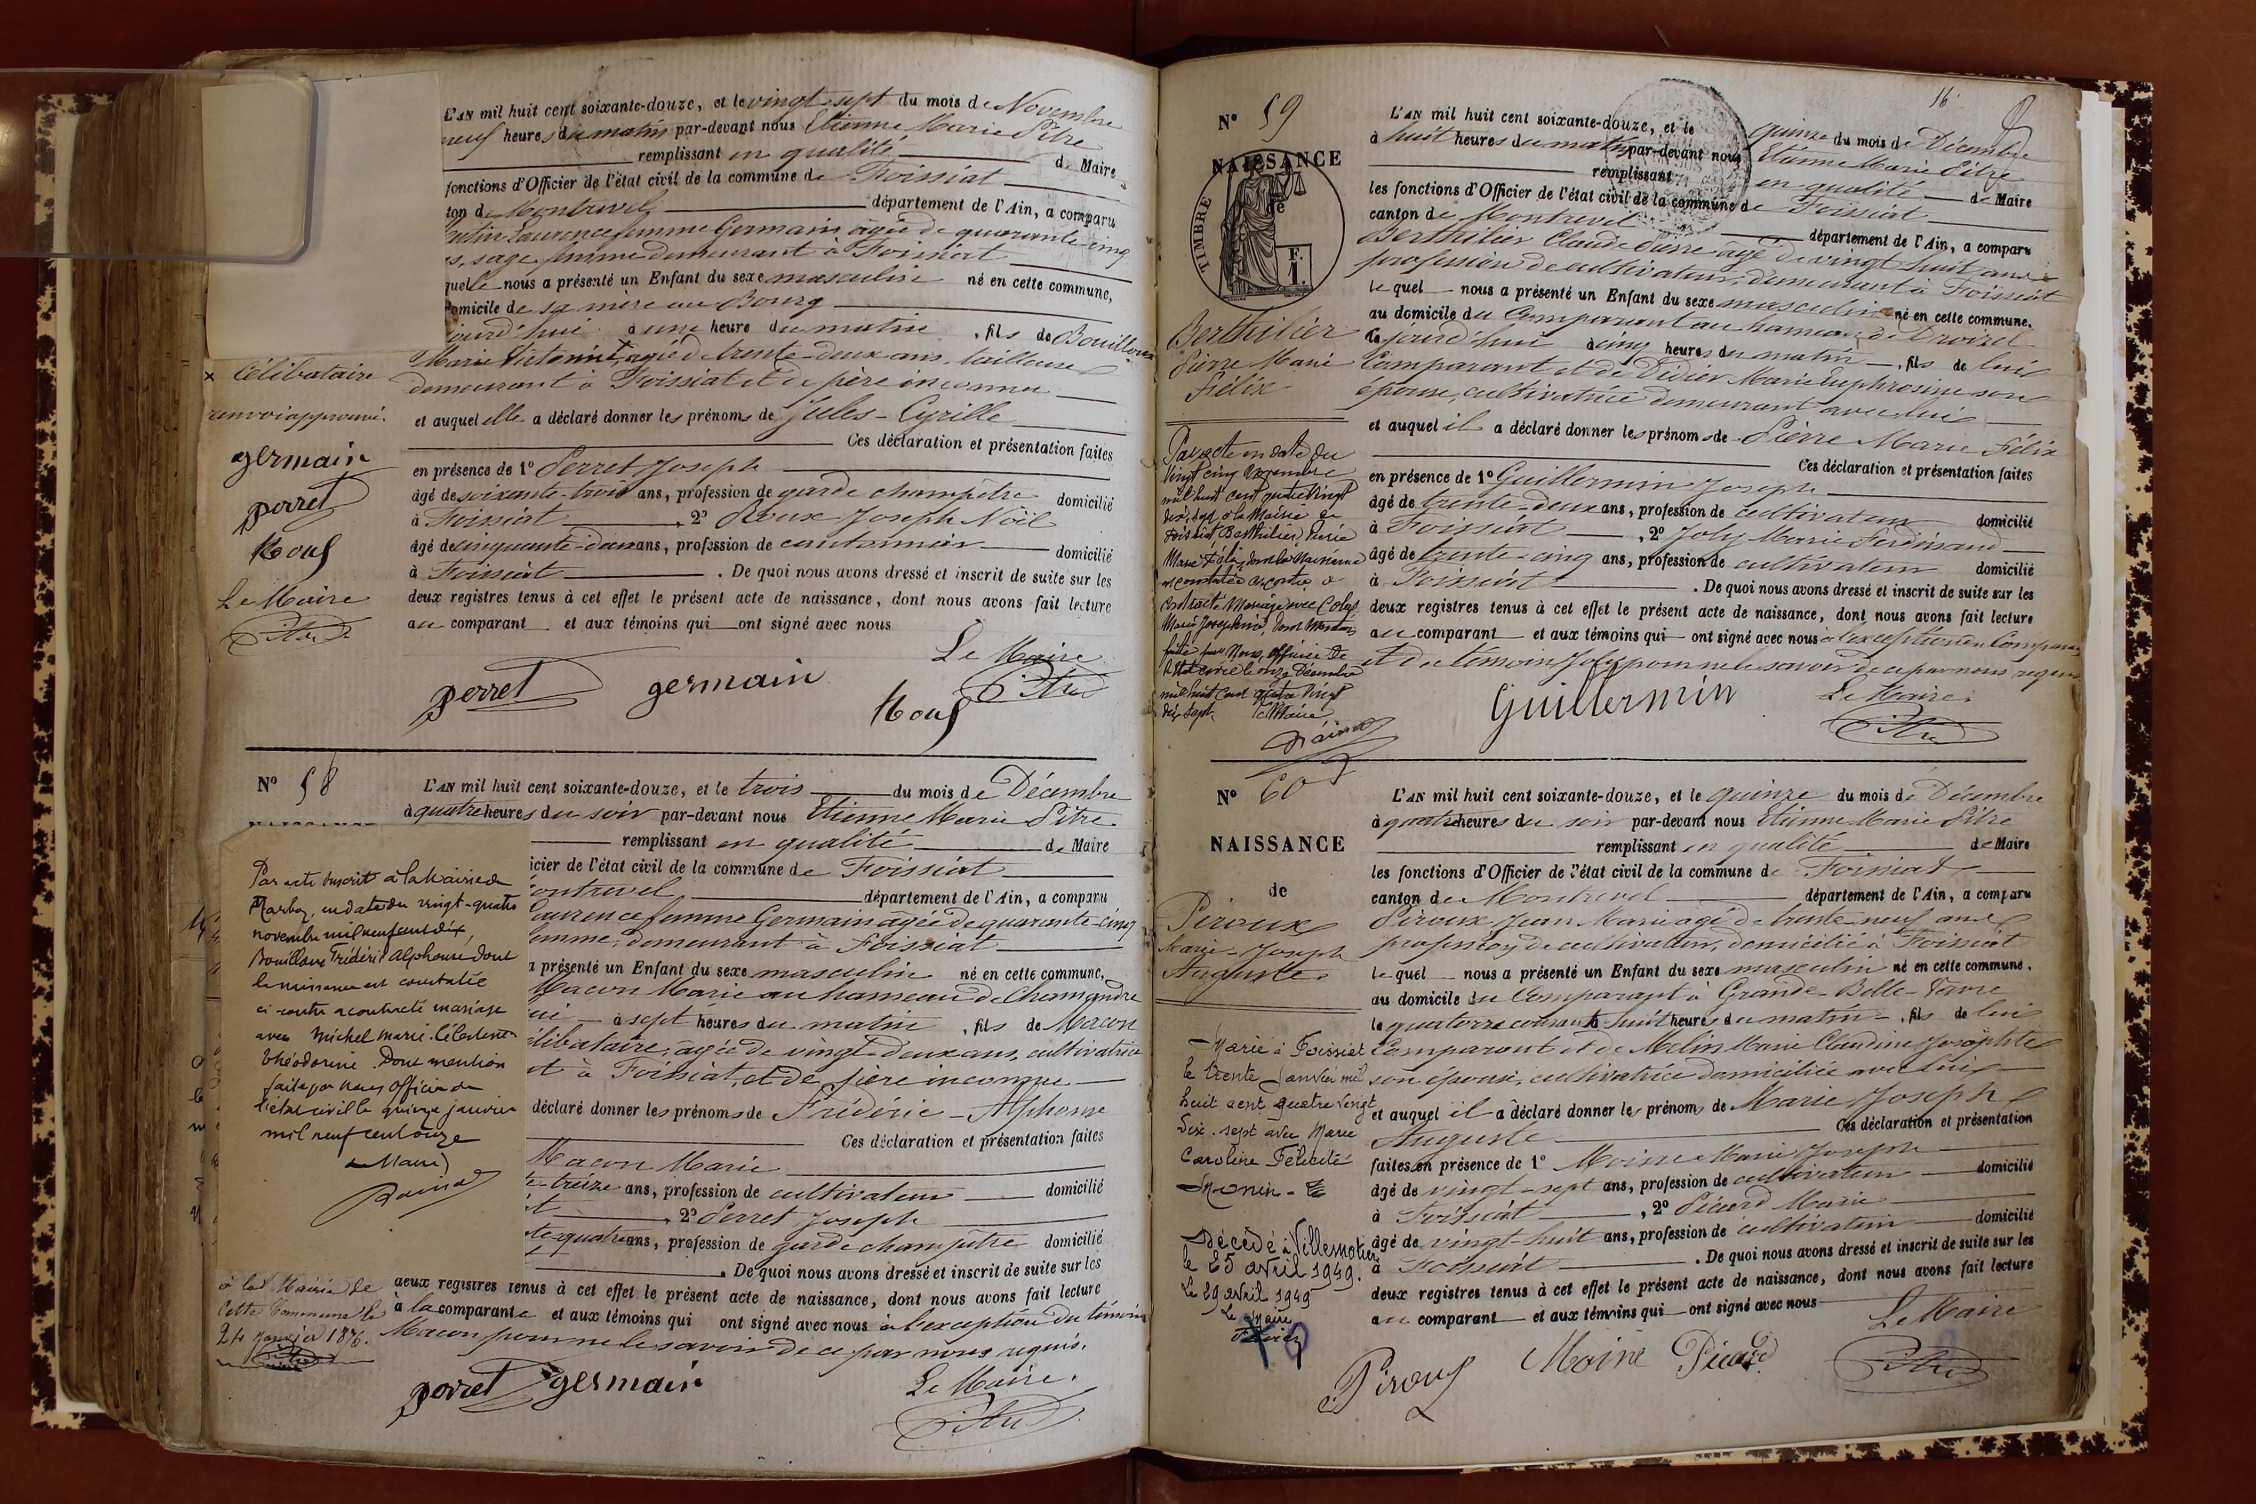 L'AN mil huit cent soixante-douze, et le vingt-sept du mois de Novembre
neuf heures du matin par-devant nous Etienne Marie Pitre
remplissant en qualité de Maire
fonctions d'Officier de l'état civil de la commune de Foissiat
ton de Montrevel département de l'Ain, a comparu
Laurence femme Germain âgée de quarante-cinq
s, sage-femme demeurant à Foissiat
quelle nous a présenté un Enfant du sexe masculin né en cette commune,
omicile de sa mère au Bourg
jourd'hui à une heure du matin, fils de Bouilloux
Marie Victorine, × âgée de trente-deux ans, tailleuse
demeurant à Foissiat et de père inconnu
et auquel elle a déclaré donner les prénoms de Jules-Cyrille
Ces déclaration et présentation faites
en présence de 1º Perret Joseph
âgé de soixante-trois ans, profession de garde champêtre domicilié
à Foissiat, 2º Roux Joseph Noël
âgé de cinquante-deux ans, profession de cantonnier domicilié
à Foissiat. De quoi nous avons dressé et inscrit de suite sur les
deux registres tenus à cet effet le présent acte de naissance, dont nous avons fait lecture
au comparant et aux témoins qui ont signé avec nous
Le Maire
perret germain Roux Pitre
× Célibataire
renvoi approuvé.
germain
perret
Roux
Le Maire
Pitre
Nº 58
L'AN mil huit cent soixante-douze, et le trois du mois de Décembre
à quatre heures du soir par-devant nous Etienne Marie Pitre
remplissant en qualité de Maire
icier de l'état civil de la commune de Foissiat
ontrevel département de l'Ain, a comparu
Laurence femme Germain âgée de quarante-cinq
emme, demeurant à Foissiat
a présenté un Enfant du sexe masculin né en cette commune,
Macon Marie au hameau de Chemandre
ui à sept heures du matin, fils de Macon
élibataire, âgée de vingt-deux ans, cultivatrice
t à Foissiat, et de père inconnu
déclaré donner les prénoms de Frédéric-Alphonse
Ces déclaration et présentation faites
Macon Marie
te-treize ans, profession de cultivateur domicilié
, 2º Perret Joseph
te-quatre ans, profession de garde champêtre domicilié
. De quoi nous avons dressé et inscrit de suite sur les
deux registres tenus à cet effet le présent acte de naissance, dont nous avons fait lecture
à la comparante et aux témoins qui ont signé avec nous à l'exception du témoin
Macon pour ne le savoir de ce par nous requis.
perret germain Le Maire.
Pitre
Par acte inscrit à la Mairie de
Marboz, en date du vingt-quatre
novembre mil neuf cent dix,
Bouilloux Frédéric Alphonse, dont
la naissance est constatée
ci-contre a contracté mariage
avec Michel Marie Célestine
Théodorine. Dont mention
faite par nous officier de
l'état civil le quinze janvier
mil neuf cent onze
Le Maire
à la Mairie de
Cette Commune le
24 janvier 1876.
Pitre
16
Nº 59
NAISSANCE
de
TIMBRE
F.
1.
Berthilier
Pierre Marie
Félix
L'AN mil huit cent soixante-douze, et le quinze du mois de Décembre
à huit heures du matin par-devant nous Etienne Marie Pitre
remplissant en qualité de Maire
les fonctions d'Officier de l'état civil de la commune de Foissiat
canton de Montrevel département de l'Ain, a comparu
Berthilier Claude Pierre âgé de vingt-huit ans
profession de cultivateur, demeurant à Foissiat
lequel nous a présenté un Enfant du sexe masculin né en cette commune.
au domicile du Comparant au hameau de
ce jourd'hui à cinq heures du matin, fils de lui
Comparant et de Didier Marie Euphrosine son
épouse, cultivatrice demeurant avec lui
et auquel il a déclaré donner les prénoms de Pierre Marie Félix
Ces déclaration et présentation faites
en présence de 1º Guillermin Joseph
âgé de trente-deux ans, profession de cultivateur domicilié
à Foissiat, 2º Joly Marie Ferdinand
âgé de trente-cinq ans, profession de cultivateur domicilié
à Foissiat. De quoi nous avons dressé et inscrit de suite sur les
deux registres tenus à cet effet le présent acte de naissance, dont nous avons fait lecture
au comparant et aux témoins qui ont signé avec nous à l'exception du Comparant
et du témoin Joly pour ne le savoir de ce par nous requis
Guillermin Le Maire.
Pitre
Par acte en date du
vingt cinq Novembre
mil huit cent quatre vingt
dix sept à la Mairie de
Foissiat, Berthilier Pierre
Marie Félix, dont la Naissance
est constatée ci-contre a
contracté Mariage avec
Marie Joséphine, dont Mention
faite par Nous, officier de
l'état civil le onze Décembre
mil huit cent quatre vingt
dix sept. Le Maire
Nº 60
NAISSANCE
de
Piroux
Marie-Joseph
Auguste.
L'AN mil huit cent soixante-douze, et le quinze du mois de Décembre
à quatre heures du soir par-devant nous Etienne Marie Pitre
remplissant en qualité de Maire
les fonctions d'Officier de l'état civil de la commune de Foissiat
canton de Montrevel département de l'Ain, a comparu
Piroux Jean Marie âgé de trente-neuf ans
profession de cultivateur, domicilié à Foissiat
lequel nous a présenté un Enfant du sexe masculin né en cette commune.
au domicile du Comparant à Grande-Belle-Vavre
le quatorze courant à huit heures du matin, fils de lui
Comparant et de Melin Marie Claudine Josephte
son épouse, cultivatrice domiciliée avec lui
et auquel il a déclaré donner les prénoms de Marie Joseph
Auguste Ces déclaration et présentation
faites en présence de 1º Moine Marie Joseph
âgé de vingt-sept ans, profession de cultivateur domicilié
à Foissiat, 2º Picard Marie
âgé de vingt-huit ans, profession de cultivateur domicilié
à Foissiat. De quoi nous avons dressé et inscrit de suite sur les
deux registres tenus à cet effet le présent acte de naissance, dont nous avons fait lecture
au comparant et aux témoins qui ont signé avec nous
Le Maire
Piroux Moine Picard Pitre
Marié à Foissiat
le trente Janvier mil
huit cent quatre vingt
dix-sept avec Marie
Caroline Félicité
Monin
Décédé à Villemotier
le 25 avril 1949.
Le 29 avril 1949
Le Maire